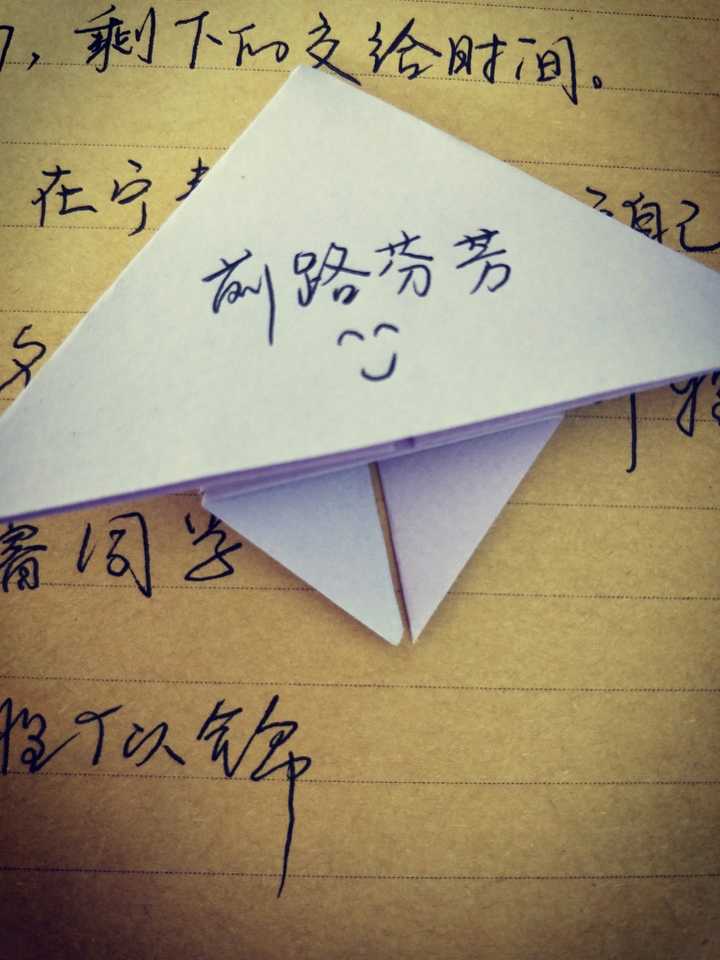 ，剩下的交给时间。
在宁
自己
前路芬芳
同学
程似锦